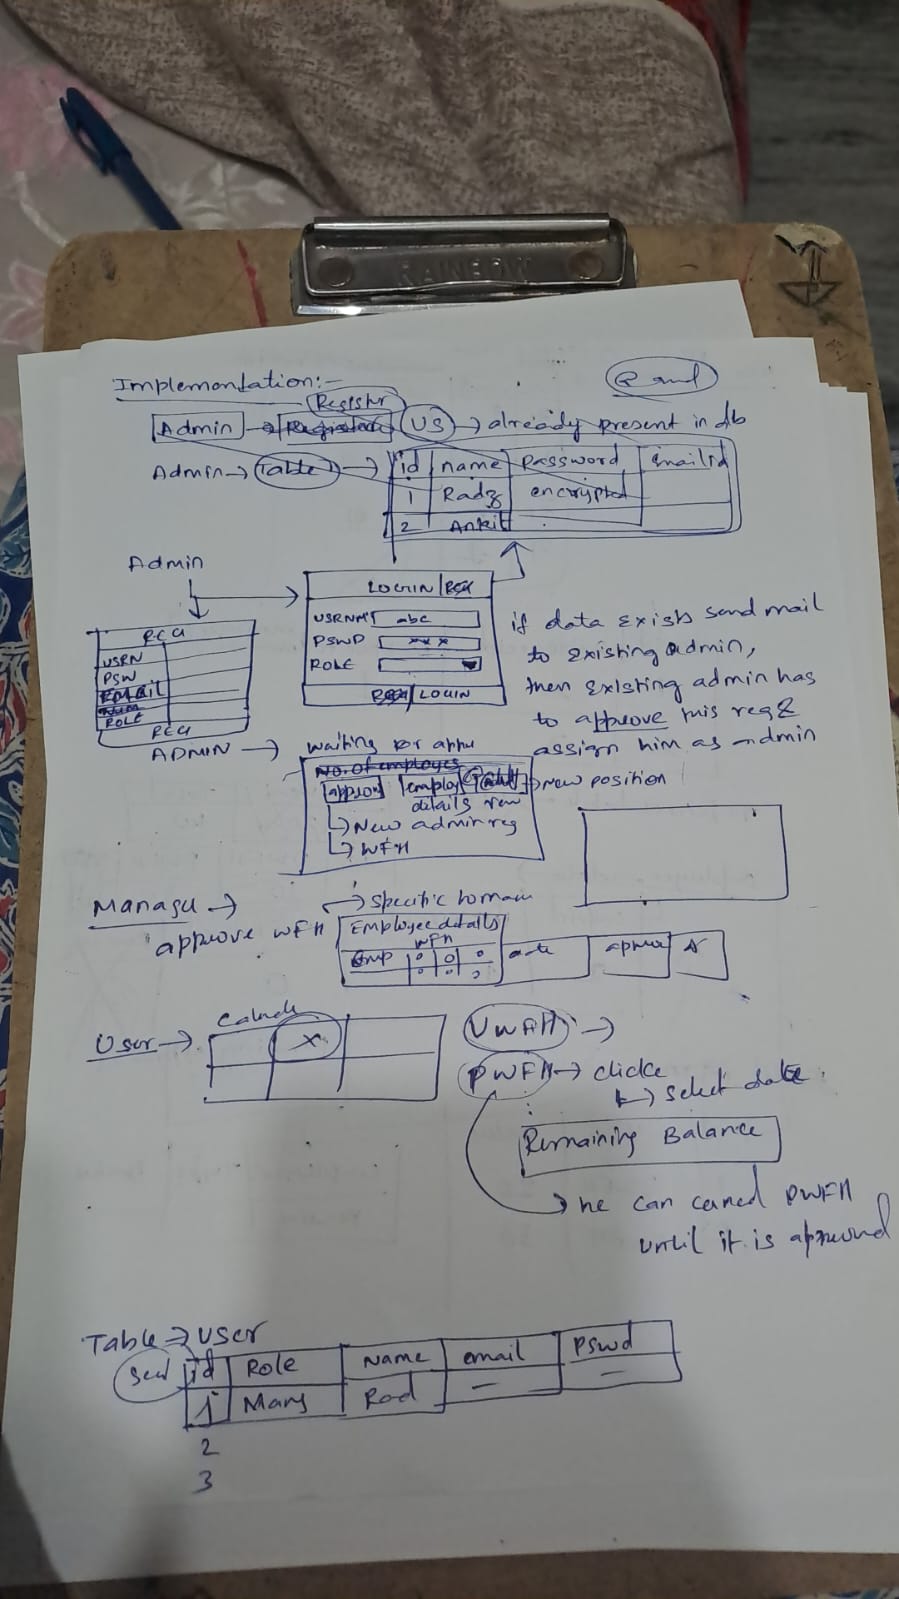 RAINBOW
Implementation:-
Register
Admin → US → already present in db
Admin → Table 1 → id name Password Email id
1 Radz encrypted
2 Ankit
Admin
LOGIN/REG
USRNM abc
PSWD x x x
ROLE
LOGIN
REG
USRN
PSW
EMAIL
ROLE
REG
if data exists send mail
to existing admin,
then existing admin has
to approve this req &
assign him as admin
ADMIN → waiting for
No. of employes
new position
details view
→ New admin reg
→ WFH
→ specific
approve WFH
Employee details
WFH
Emp
date
User →
x
PWFH → click
→ select date
Remaining Balance
→ he can cancel PWFH
until it is approved
Table → User
id Role Name email pswd
1 Rad - -
2
3